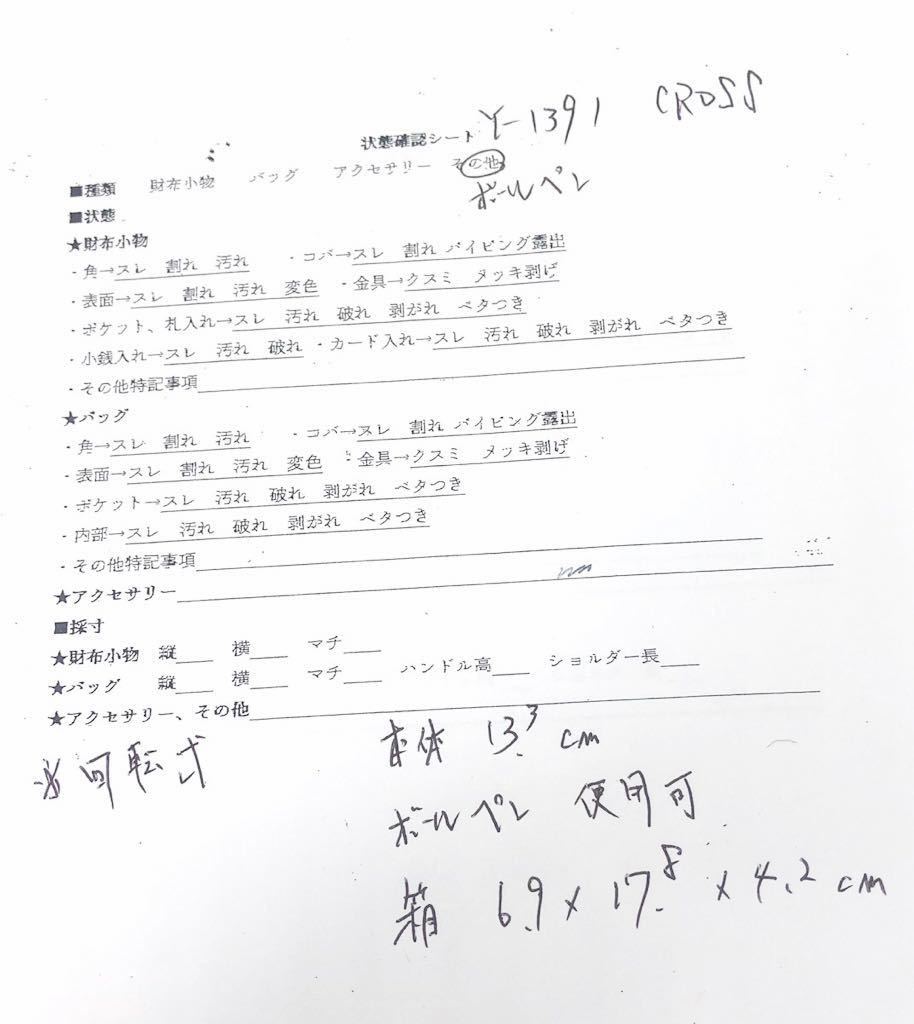 状態確認シート Y-1391 CROSS
■種類 財布小物 バッグ アクセサリー その他
ボールペン
■状態
★財布小物
・角→スレ 割れ 汚れ ・コバ→スレ 割れ パイピング露出
・表面→スレ 割れ 汚れ 変色 ・金具→クスミ メッキ剥げ
・ポケット、札入れ→スレ 汚れ 破れ 剥がれ ベタつき
・小銭入れ→スレ 汚れ 破れ ・カード入れ→スレ 汚れ 破れ 剥がれ ベタつき
・その他特記事項
★バッグ
・角→スレ 割れ 汚れ ・コバ→スレ 割れ パイピング露出
・表面→スレ 割れ 汚れ 変色 ・金具→クスミ メッキ剥げ
・ポケット→スレ 汚れ 破れ 剥がれ ベタつき
・内部→スレ 汚れ 破れ 剥がれ ベタつき
・その他特記事項
★アクセサリー
■採寸
★財布小物 縦 横 マチ
★バッグ 縦 横 マチ ハンドル高 ショルダー長
★アクセサリー、その他
※回転式 本体 13.3 cm
ボールペン 使用可
箱 6.9 x 17.8 x 4.2 cm